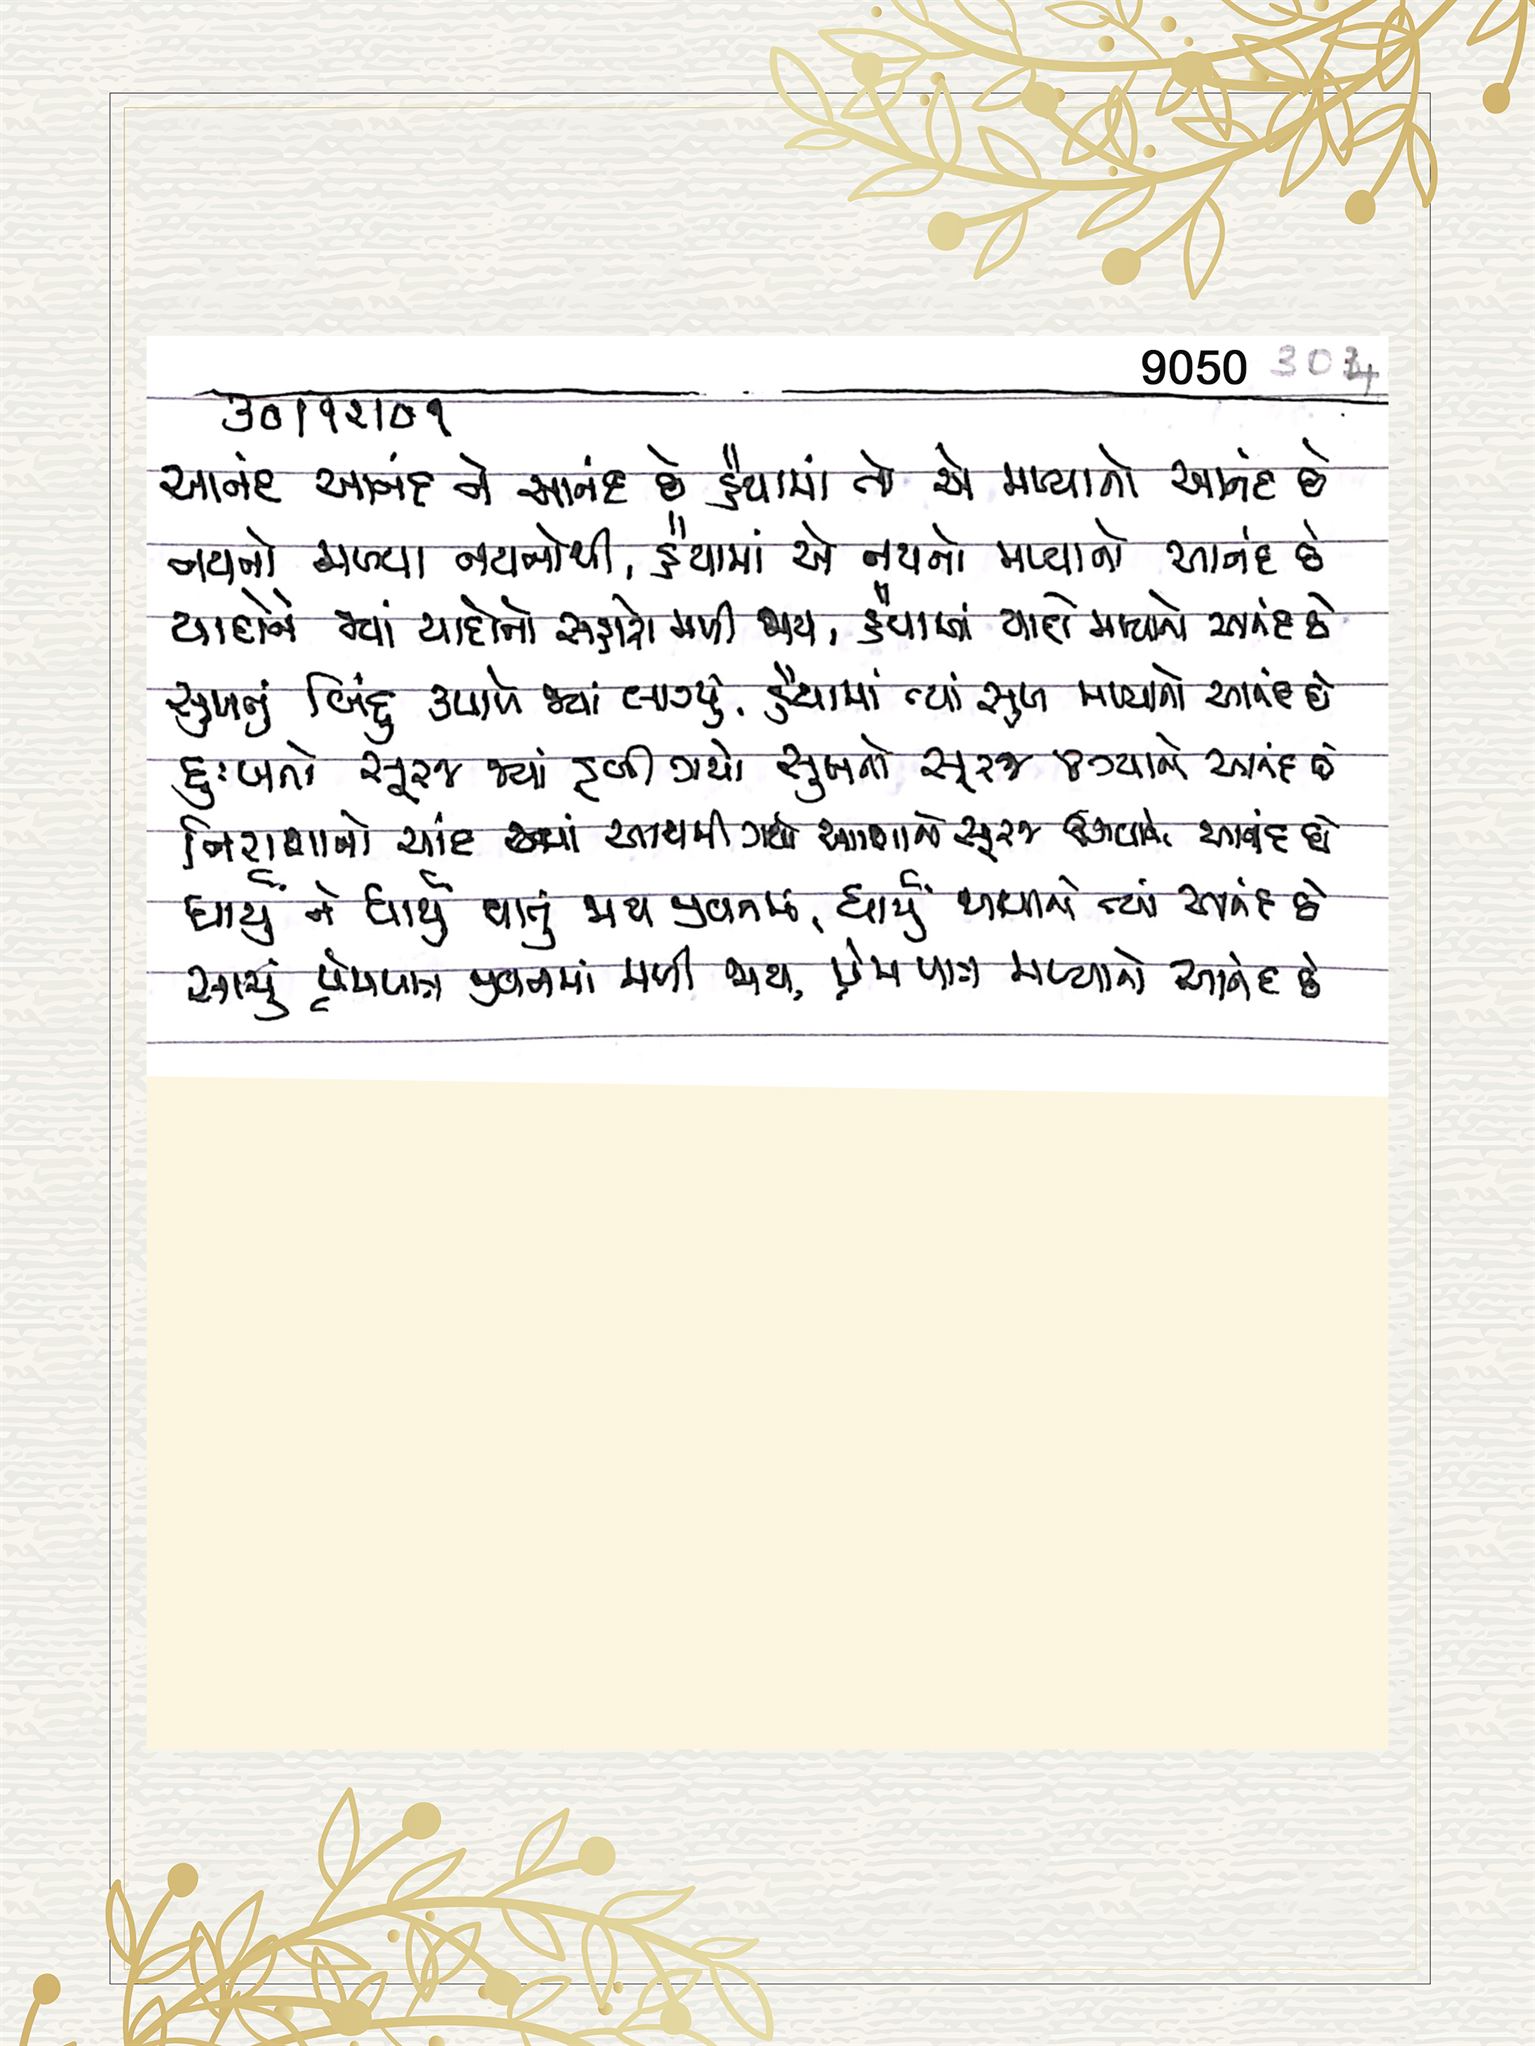 9050 304
૩૦/૧૨/૦૧
આનંદ આનંદ ને આનંદ છે હૈયામાં તો એ મળ્યાનો આનંદ છે
નયનો મળ્યા નયનોથી, હૈયામાં એ નયનો મળ્યાનો આનંદ છે
યાદોને જ્યાં યાદોનો સહારો મળી જાય, હૈયામાં યાદો મળ્યાનો આનંદ છે
સુખનું બિંદુ કપાળે જ્યાં લાગ્યું, હૈયામાં ત્યાં સુખ મળ્યાનો આનંદ છે
દુઃખનો સૂરજ જ્યાં ડૂબી ગયો સુખનો સૂરજ ઊગ્યાનો આનંદ છે
નિરાશાનો ચાંદ જ્યાં આથમી ગયો આશાનો સૂરજ ઊગ્યાનો આનંદ છે
ધાર્યું ને ધાર્યું થાતું જાય જીવનમાં, ધાર્યું થયાનો ત્યાં આનંદ છે
સાચું પ્રેમપાત્ર જીવનમાં મળી જાય, પ્રેમપાત્ર મળ્યાનો આનંદ છે